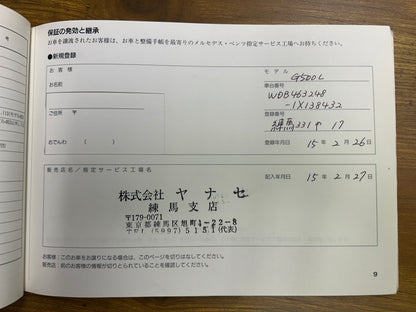 保証の発効と継承
お車を譲渡されたお客様は、お車と整備手帳を最寄りのメルセデス・ベンツ指定サービス工場へお持ちください。
●新規登録
お客様
お名前
ご住所 〒
おでんわ ( )
モデル G500L
車台番号
WDB463248
-1X138432
登録番号
練馬331や 17
登録年月日 15年 2月 26日
販売店名/指定サービス工場名
記入年月日 15年 2月 27日
株式会社 ヤナセ
練馬支店
〒179-0071
東京都練馬区旭町4-22-8
TEL (5997) 5151 (代表)
お客様：このお車をお譲りになる場合は、このページを切りはなしてください。
販売店：前のお客様の情報が切りとられていることを確認してください。
9